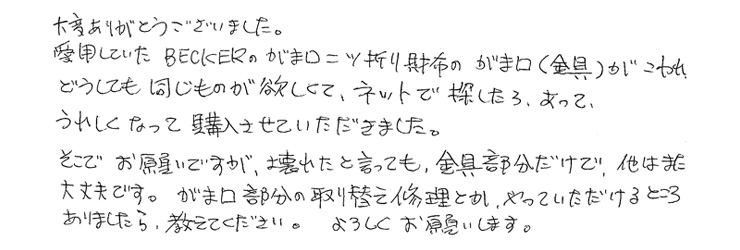 大変ありがとうございました。
愛用していた BECKERのがま口二ツ折り財布の がま口(金具)がこわれ
どうしても 同じものが欲しくて、ネットで 探したら、あって、
うれしくなって 購入させていただきました。
そこで お願いですが、壊れたと言っても、金具部分だけで、他はまだ
大丈夫です。 がま口部分の取り替え修理とか、やっていただけるところ
ありましたら、教えてください。 よろしく お願いします。